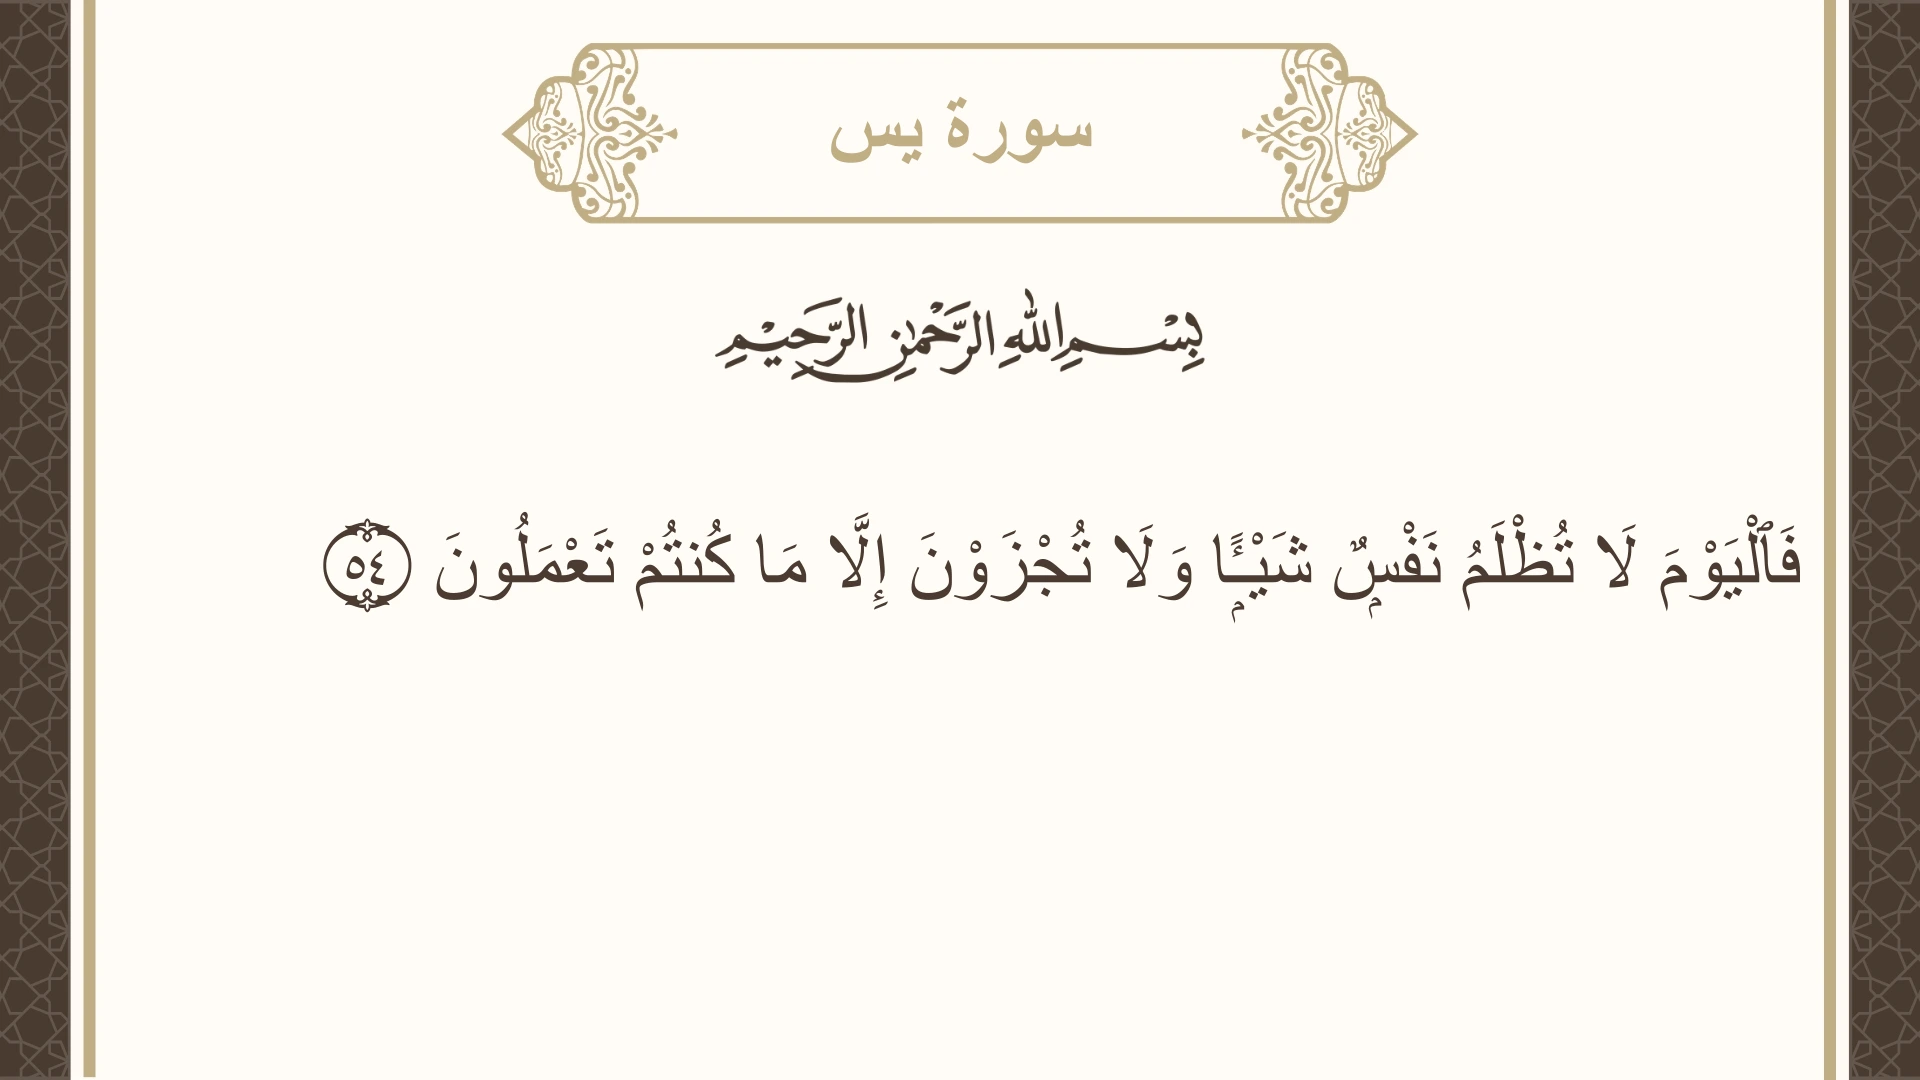 سورة يس
بِسْمِ اللهِ الرَّحْمٰنِ الرَّحِيْمِ
فَٱلْيَوْمَ لَا تُظْلَمُ نَفْسٌۭ شَيْـًۭٔا وَلَا تُجْزَوْنَ إِلَّا مَا كُنتُمْ تَعْمَلُونَ ٥٤